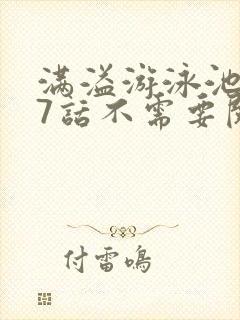 满溢游泳池
7話不需要
付雷鳴